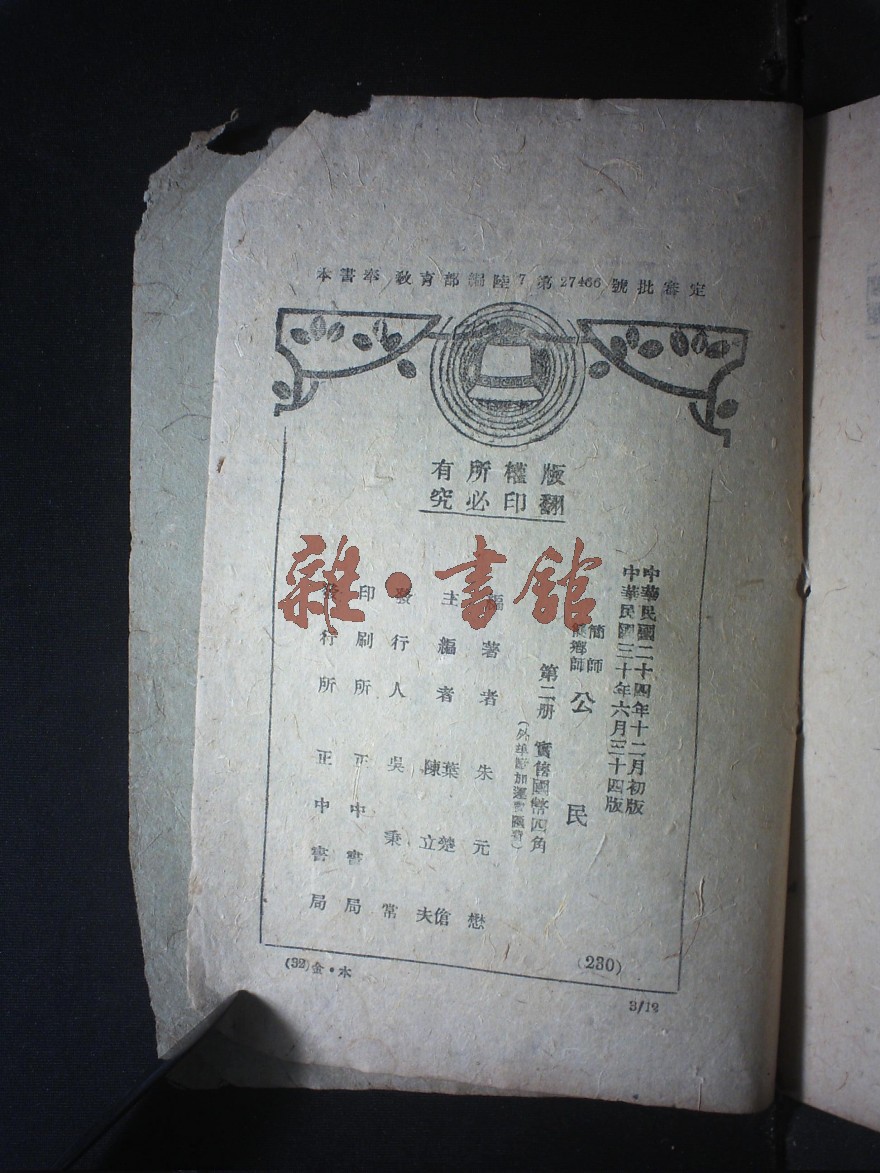 本書奉教育部編陸7第27466號批審定
版權所有
翻印必究
中華民國二十四年十二月初版
中華民國三十年六月三十四版
簡師
簡鄉師
公民
第二册
實售國幣四角
(外埠酌加運費匯費)
編著者 朱元懋
主編者 葉楚傖 陳立夫
發行人 吳秉常
印刷所 正中書局
發行所 正中書局
(230)
(32)金·木
3/12
雜·書館